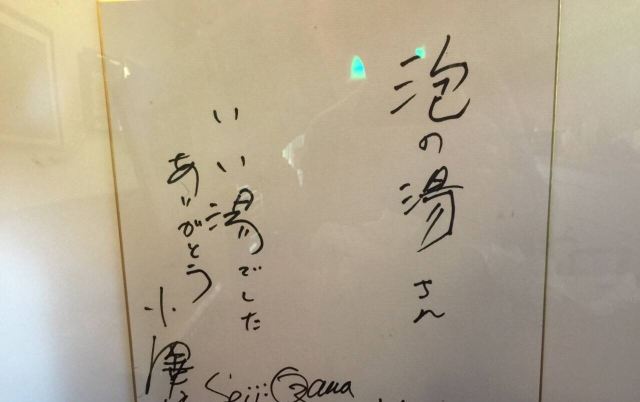 泡の湯さん
いい湯でした
ありがとう
小澤
Seiji Ozawa